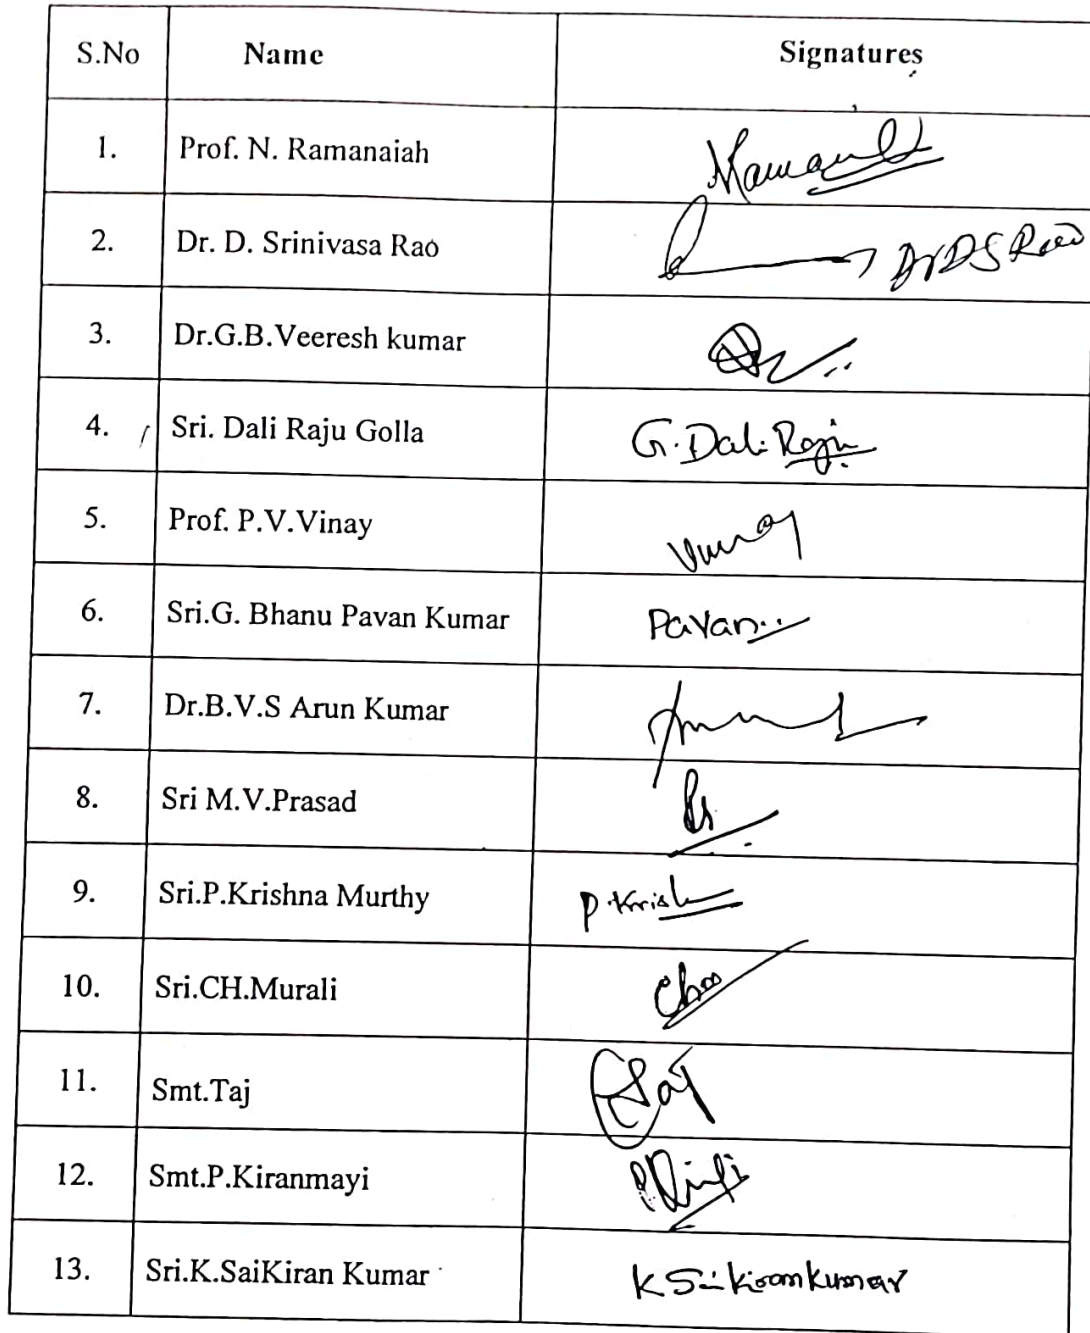 S.No Name Signatures
1. Prof. N. Ramanaiah
2. Dr. D. Srinivasa Rao Dr DS Rao
3. Dr.G.B.Veeresh kumar
4. Sri. Dali Raju Golla G. Dali Raju
5. Prof. P.V.Vinay Vinay
6. Sri.G. Bhanu Pavan Kumar Pavan
7. Dr.B.V.S Arun Kumar
8. Sri M.V.Prasad
9. Sri.P.Krishna Murthy P.Krish
10. Sri.CH.Murali
11. Smt.Taj Taj
12. Smt.P.Kiranmayi
13. Sri.K.SaiKiran Kumar K Sai Kiran Kumar